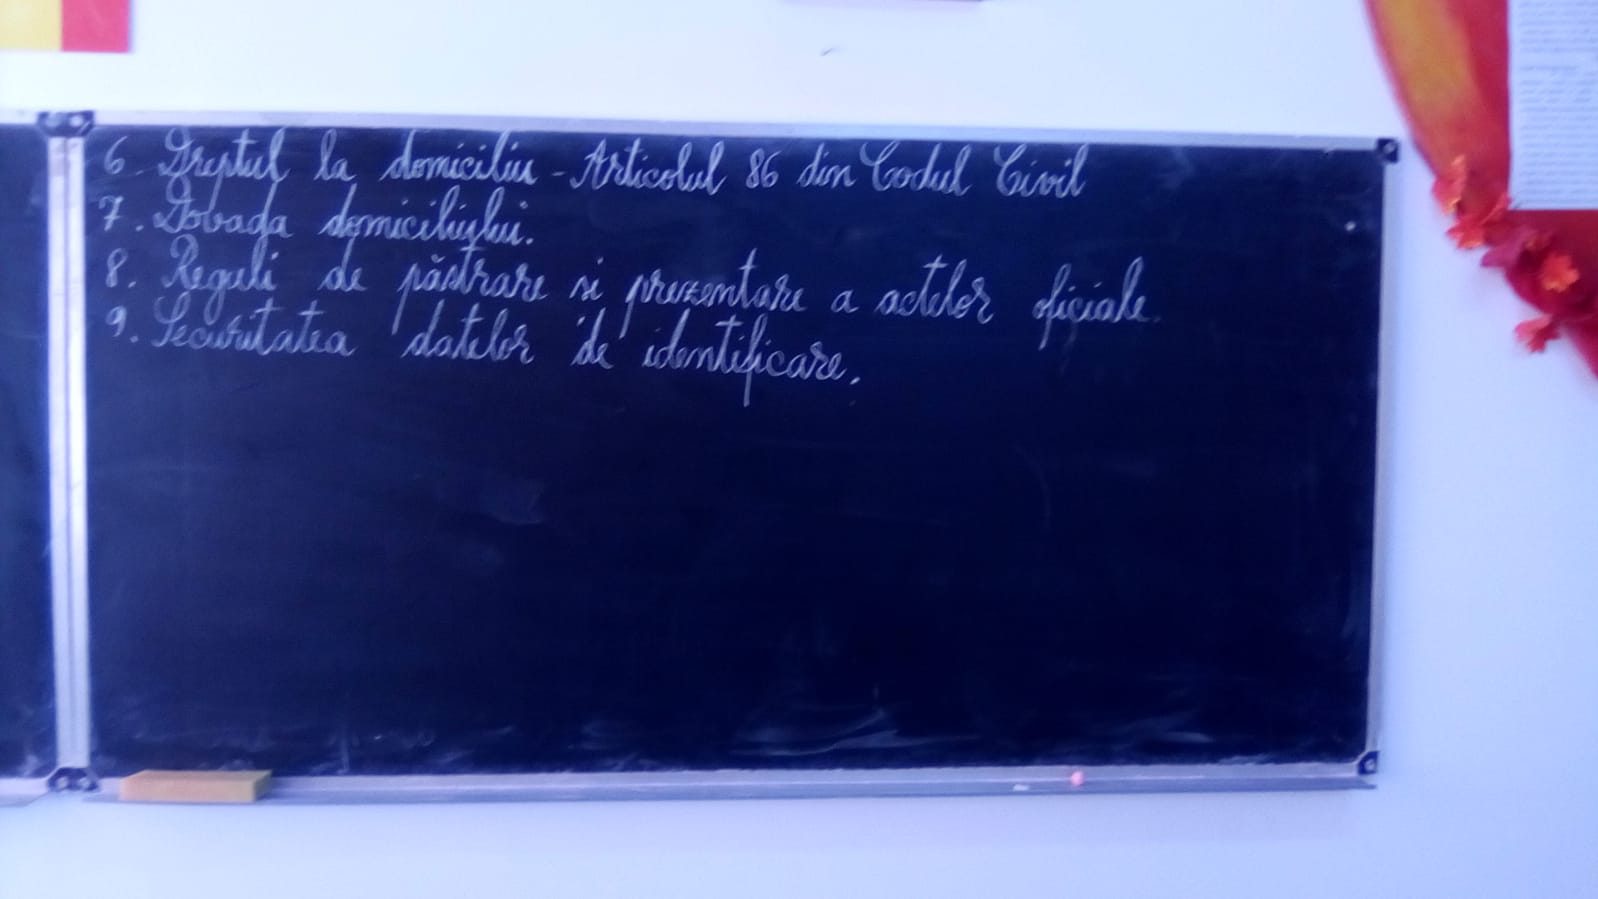 6. Dreptul la domiciliu - Articolul 86 din Codul Civil
7. Dovada domiciliului.
8. Reguli de păstrare si prezentare a actelor oficiale.
9. Securitatea datelor de identificare.